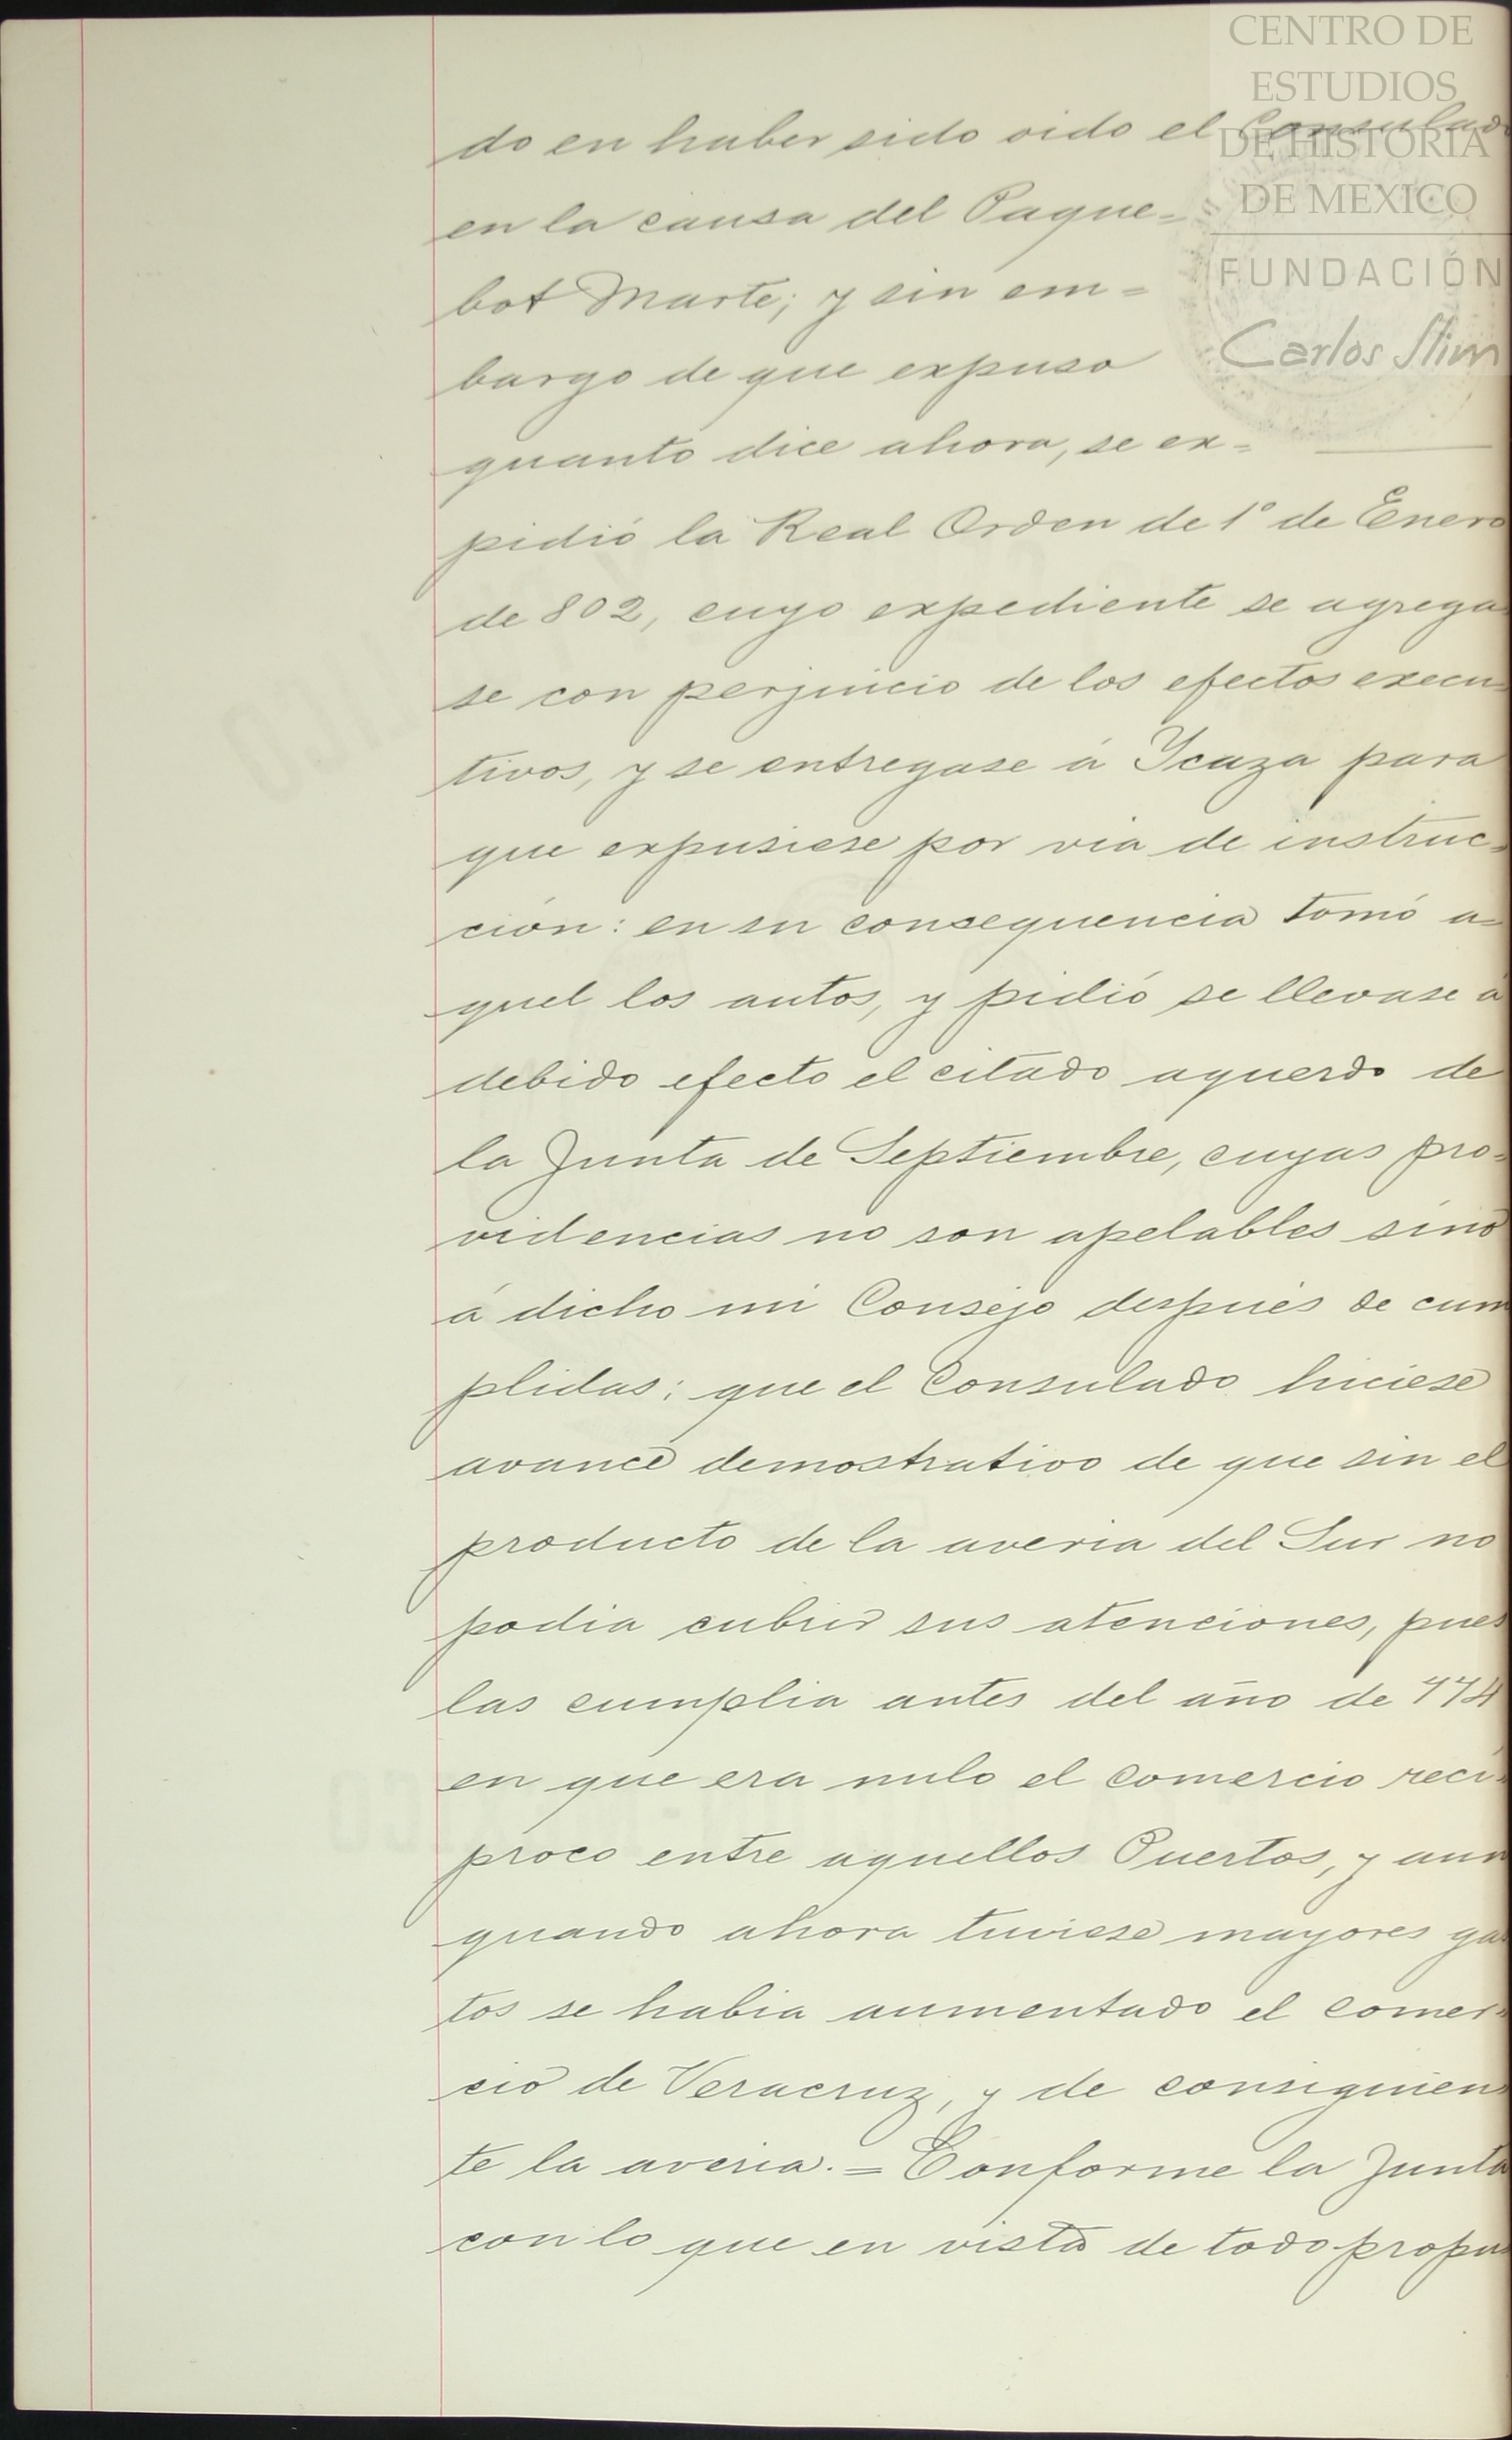 CENTRO DE
ESTUDIOS
DE HISTORIA
DE MEXICO
FUNDACIÓN
Carlos Slim
do en haber sido oido el Consulado
en la causa del Paque=
bot Marte; y sin em=
bargo de que expuso
quanto dice ahora, se ex=
pidió la Real Orden de 1º de Enero
de 802, cuyo expediente se agrega
se con perjuicio de los efectos execu=
tivos, y se entregase á Ycaza para
que expusiese por via de instruc=
ción: en su consequencia tomó a=
quel los autos, y pidió se llevase á
debido efecto el citado aquerdo de
la Junta de Septiembre, cuyas pro=
videncias no son apelables sinó
á dicho mi Consejo despues de cum
plidas; que el Consulado hiciese
avance demostrativo de que sin el
producto de la averia del Sur no
podia cubrir sus atenciones, pues
las cumplia antes del año de 774
en que era nulo el comercio reci=
proco entre aquellos Puertos, y aun
quando ahora tuviese mayores gas
tos se habia aumentado el comer=
cio de Veracruz, y de consiguien=
te la averia. = Conforme la Junta
con lo que en vista de todo propu